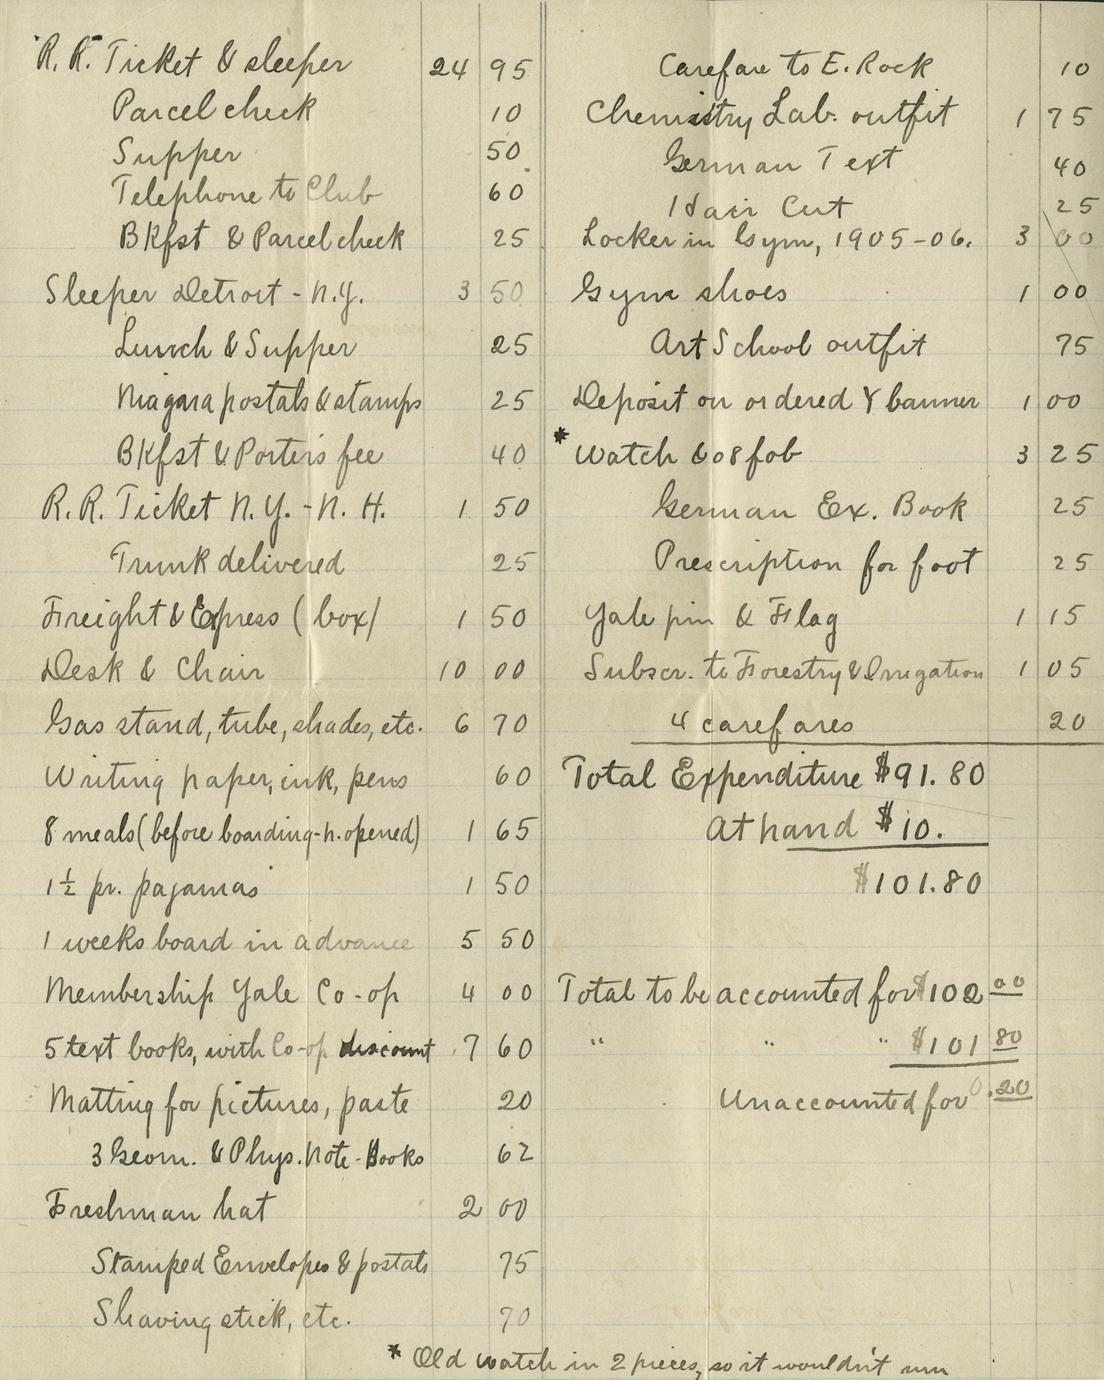 R.R. Ticket & sleeper 24 95
Parcel check 10
Supper 50
Telephone to Club 60
Bkfst & Parcel check 25
Sleeper Detroit - N.Y. 3 50
Lunch & Supper 25
Niagara postals & stamps 25
Bkfst & Porter's fee 40
R.R. Ticket N.Y. - N. H. 1 50
Trunk delivered 25
Freight & Express (box) 1 50
Desk & Chair 10 00
Gas stand, tube, shades, etc. 6 70
Writing paper, ink, pens 60
8 meals (before boarding-h. opened) 1 65
1½ pr. pajamas 1 50
1 weeks board in advance 5 50
Membership Yale Co-op 4 00
5 text books, with Co-op discount 7 60
Matting for pictures, paste 20
3 Geom. & Phys. Note-Books 62
Freshman hat 2 00
Stamped Envelopes & postals 75
Shaving stick, etc. 70
Carefare to E. Rock 10
Chemistry Lab. outfit 1 75
German Text 40
Hair Cut 25
Locker in Gym, 1905-06. 3 00
Gym shoes 1 00
Art School outfit 75
Deposit on ordered Y banner 1 00
* Watch & 08 fob 3 25
German Ex. Book 25
Prescription for foot 25
Yale pin & Flag 1 15
Subscr. to Forestry & Irrigation 1 05
4 carefares 20
Total Expenditure $91.80
At hand $10.
$101.80
Total to be accounted for $102 00
" " " $101 80
Unaccounted for 0.20
* Old watch in 2 pieces, so it wouldn't run